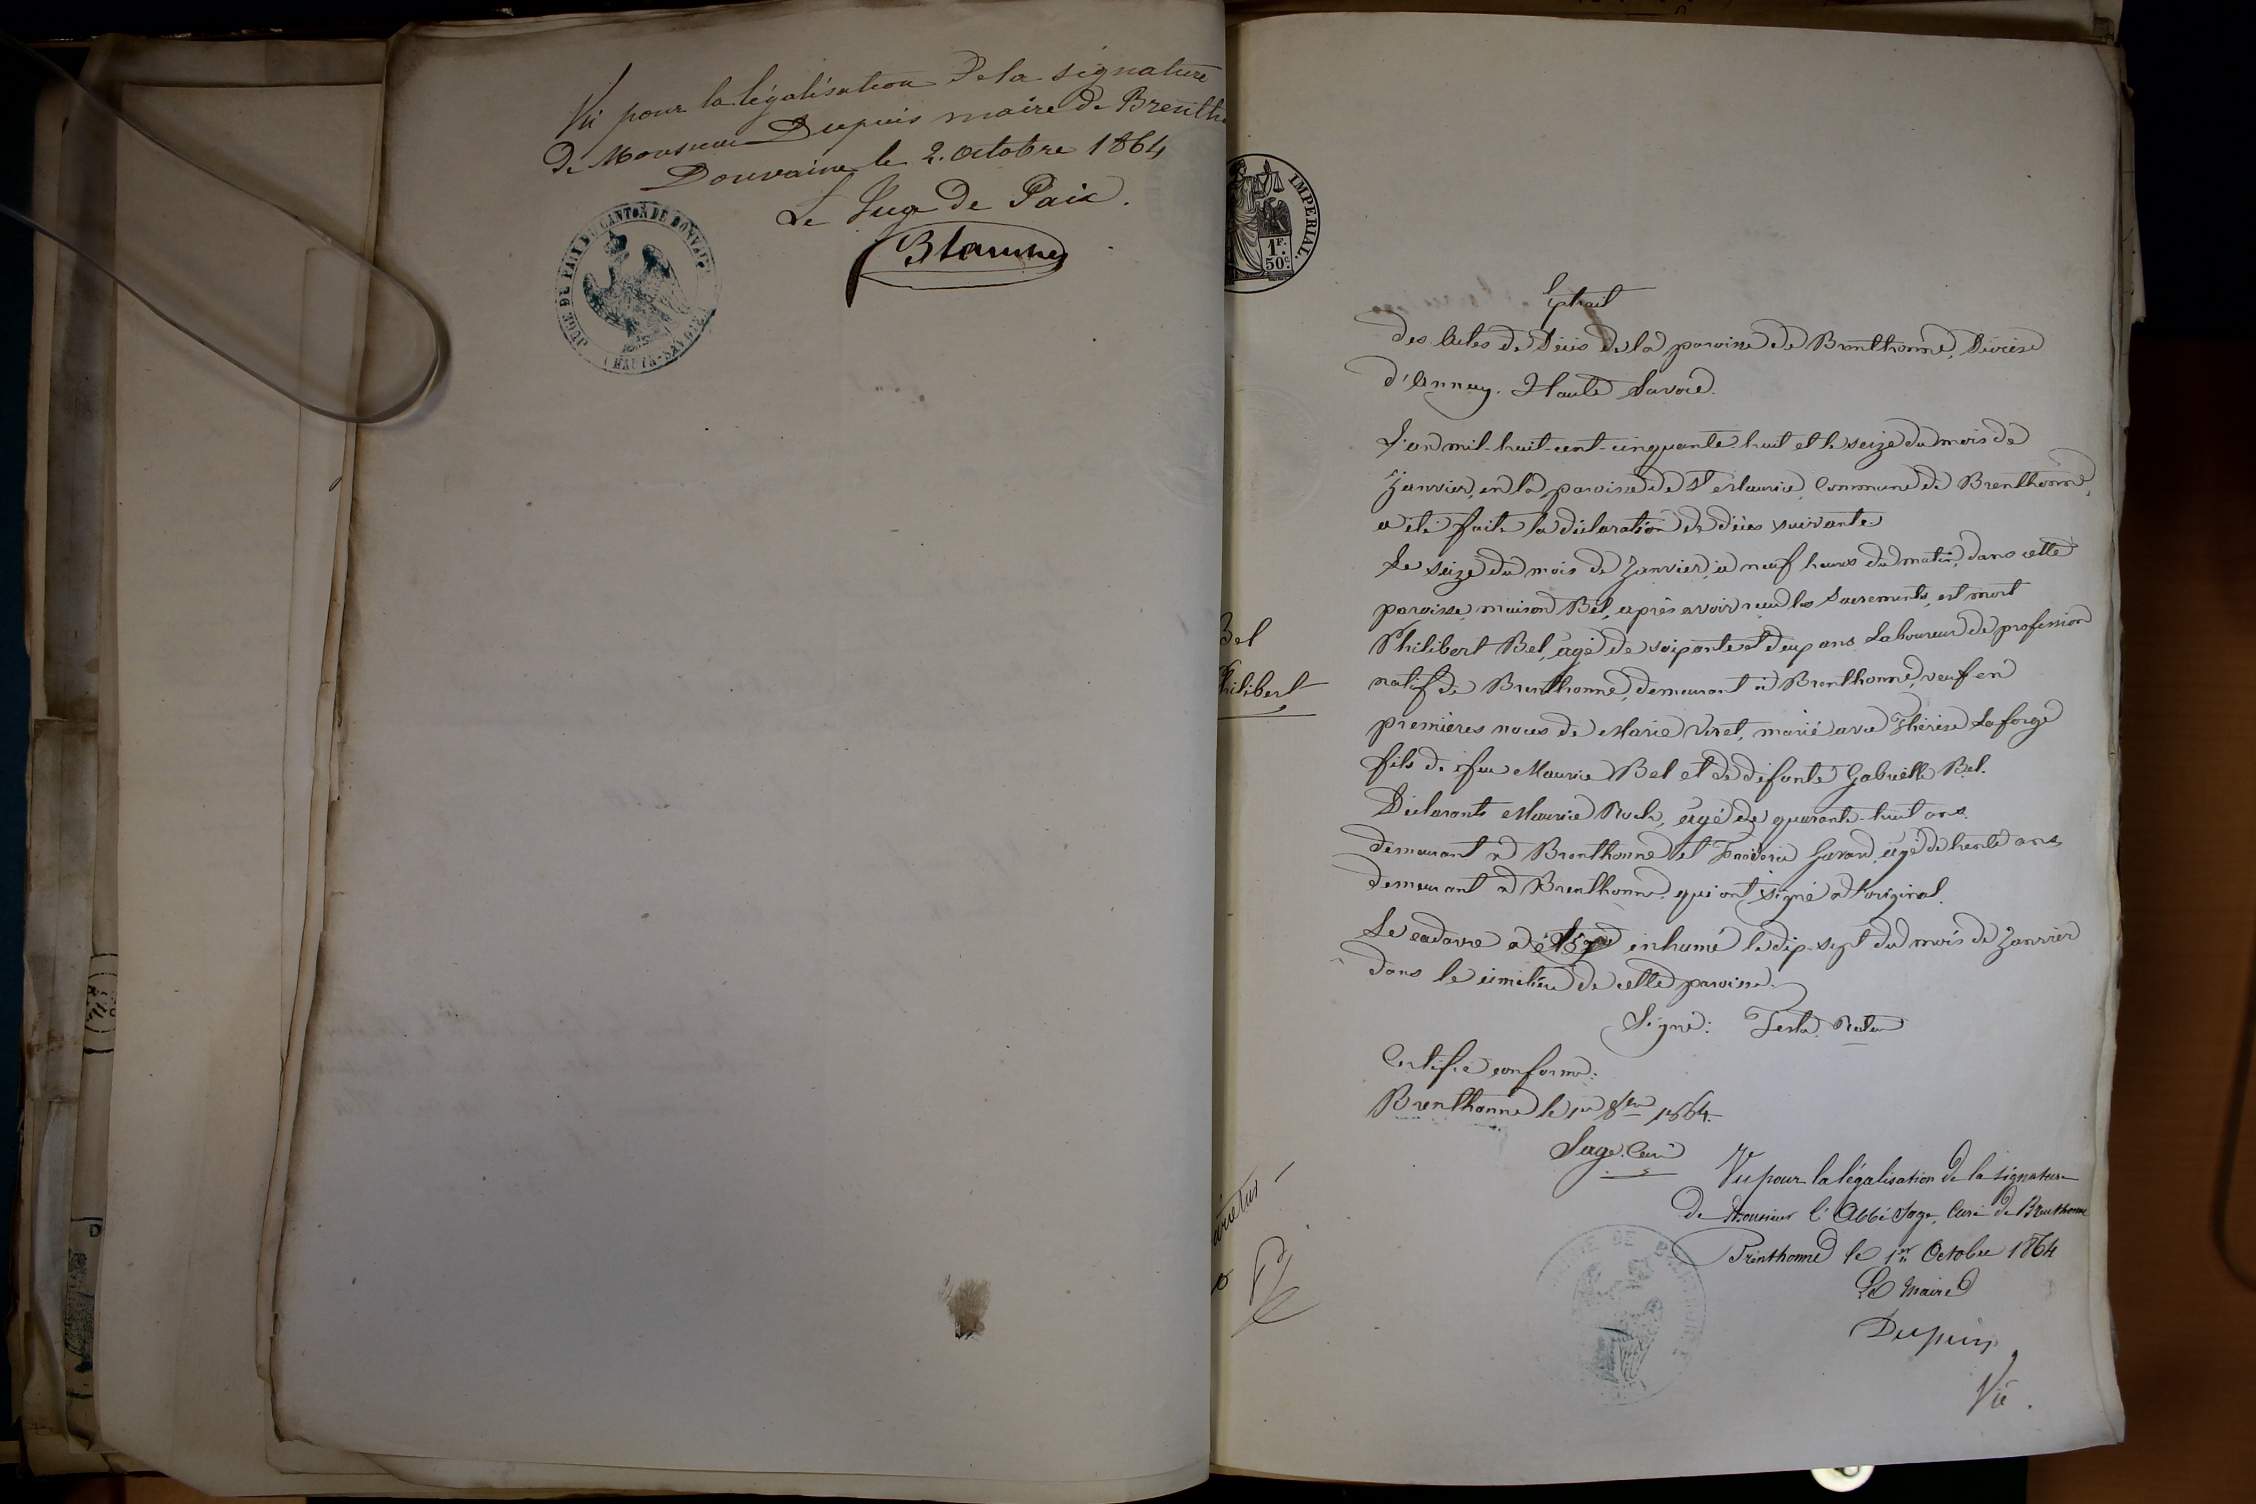 Vu pour la légalisation de la signature
de Monsieur Dupuis maire de Brentho
Douvaine le 2. octobre 1864
Le Juge de Paix.
JUGE DE PAIX DU CANTON DE DOUVAINE
(HAUTE-SAVOIE)
IMPERIAL.
1F.
50c.
Extrait
des Actes de Décès de la paroisse de Brenthonne, Diocèse
d'Annecy. Haute Savoie.
L'an mil-huit-cent-cinquante-huit et le seize du mois de
Janvier, en la paroisse de St Maurice, Commune de Brenthonne,
a été faite la déclaration de décès suivante.
Le seize du mois de Janvier, à neuf heures du matin, dans cette
paroisse, maison Bel, après avoir reçu les Sacrements, est mort
Philibert Bel, âgé de soixante et deux ans, Laboureur de profession
Bel
Philibert
natif de Brenthonne, demeurant à Brenthonne, veuf en
premières noces de Marie Viret, marié avec Thérèse Laforge
fils de feu Maurice Bel et de défunte Gabrielle Bel.
Déclarants Maurice Roch, âgé de quarante-huit ans.
demeurant à Brenthonne et Frédéric Gavard, âgé de trente ans
demeurant à Brenthonne qui ont signé à l'original.
Le cadavre a été inhumé le dix-sept du mois de Janvier
dans le cimetière de cette paroisse.
Signé: Testa Recteur
Certifié conforme:
Brenthonne le 1er 8bre 1864.
Sage. Curé
Vu pour la légalisation de la signature
de Monsieur l'Abbé Sage, Curé de Brenthonne
Brenthonne le 1er Octobre 1864
Le Maire
Dupuis
Vu.